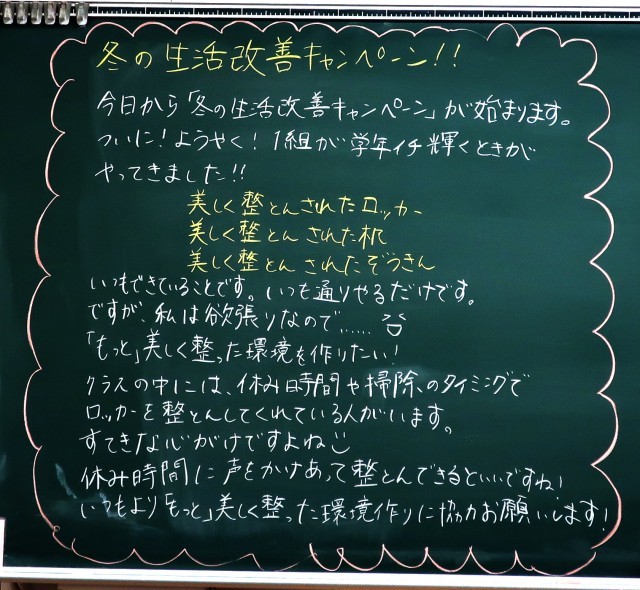 冬の生活改善キャンペーン!!
今日から「冬の生活改善キャンペーン」が始まります。
ついに!ようやく!1組が学年イチ輝くときが
やってきました!!
美しく整とんされたロッカー
美しく整とんされた机
美しく整とんされたぞうきん
いつもできていることです。いつも通りやるだけです。
ですが、私は欲張りなので……
「もっと」美しく整った環境を作りたい!
クラスの中には、休み時間や掃除のタイミングで
ロッカーを整とんしてくれている人がいます。
すてきな心がけですよね
休み時間に声をかけあって整とんできるといいですね!
いつもより「もっと」美しく整った環境作りに協力お願いします!